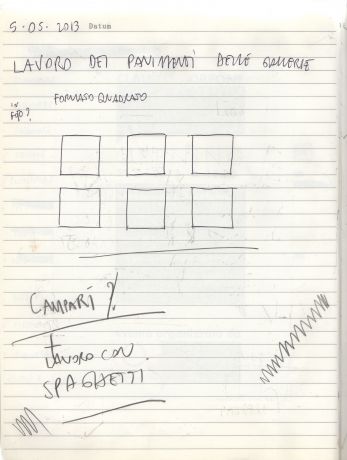 5.05.2013 Datum
LAVORO DEI PAVIMENTI DELLE GALLERIE
FORMATO QUADRATO
IN
FOTO?
CAMPARI?
LAVORO CON
SPAGHETTI